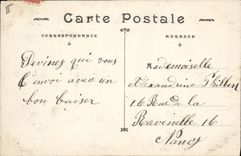 Carte Postale
CORRESPONDANCE
Devines qui vous
l'envoi avec un
bon baiser
ADRESSE
Mademoiselle
Alexandrine
16 Rue de la
Ravinelle 16
Nancy